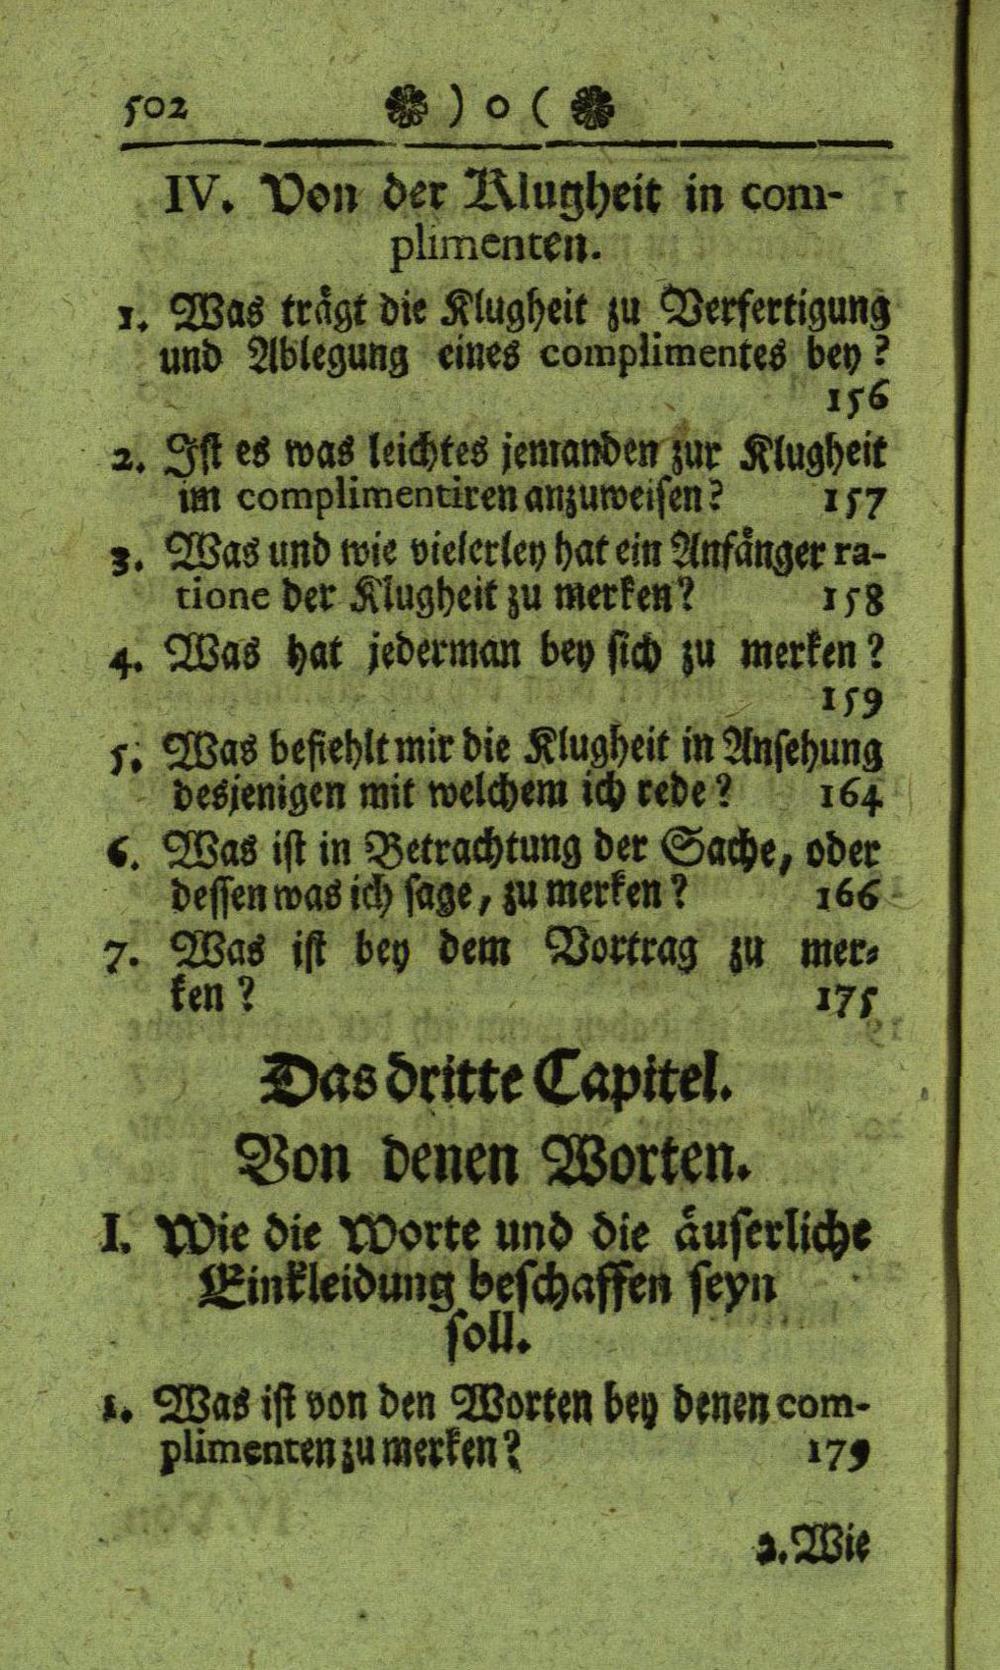 502 ❁ ) o ( ❁
IV. Von der Klugheit in com-
plimenten.
1. Was trägt die Klugheit zu Verfertigung
und Ablegung eines complimentes bey?
156
2. Ist es was leichtes jemanden zur Klugheit
im complimentiren anzuweisen? 157
3. Was und wie vielerley hat ein Anfänger ra-
tione der Klugheit zu merken? 158
4. Was hat jederman bey sich zu merken?
159
5. Was befiehlt mir die Klugheit in Ansehung
desjenigen mit welchem ich rede? 164
6. Was ist in Betrachtung der Sache, oder
dessen was ich sage, zu merken? 166
7. Was ist bey dem Vortrag zu mer-
ken? 175
Das dritte Capitel.
Von denen Worten.
I. Wie die Worte und die äuserliche
Einkleidung beschaffen seyn
soll.
1. Was ist von den Worten bey denen com-
plimenten zu merken? 179
2. Wie